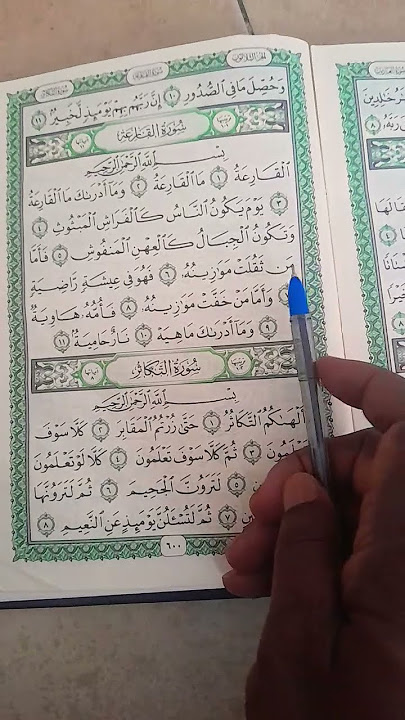 الجزء الثلاثون سورة القارعة سورة التكاثر
وَحُصِّلَ مَا فِي ٱلصُّدُورِ ١٠ إِنَّ رَبَّهُم بِهِمْ يَوْمَئِذٍ لَّخَبِيرٌ ١١
سُورَةُ القَارِعَةِ
بِسْمِ ٱللَّهِ ٱلرَّحْمَٰنِ ٱلرَّحِيمِ
ٱلْقَارِعَةُ ١ مَا ٱلْقَارِعَةُ ٢ وَمَآ أَدْرَىٰكَ مَا ٱلْقَارِعَةُ
٣ يَوْمَ يَكُونُ ٱلنَّاسُ كَٱلْفَرَاشِ ٱلْمَبْثُوثِ ٤
وَتَكُونُ ٱلْجِبَالُ كَٱلْعِهْنِ ٱلْمَنفُوشِ ٥ فَأَمَّا
مَن ثَقُلَتْ مَوَٰزِينُهُۥ ٦ فَهُوَ فِي عِيشَةٍ رَّاضِيَةٍ
وَأَمَّا مَنْ خَفَّتْ مَوَٰزِينُهُۥ ٨ فَأُمُّهُۥ هَاوِيَةٌ
٩ وَمَآ أَدْرَىٰكَ مَا هِيَهْ ١٠ نَارٌ حَامِيَةٌۢ ١١
سُورَةُ التَّكَاثُرِ
بِسْمِ ٱللَّهِ ٱلرَّحْمَٰنِ ٱلرَّحِيمِ
أَلْهَىٰكُمُ ٱلتَّكَاثُرُ ١ حَتَّىٰ زُرْتُمُ ٱلْمَقَابِرَ ٢ كَلَّا سَوْفَ
تَعْلَمُونَ ٣ ثُمَّ كَلَّا سَوْفَ تَعْلَمُونَ ٤ كَلَّا لَوْ تَعْلَمُونَ
٥ لَتَرَوُنَّ ٱلْجَحِيمَ ٦ ثُمَّ لَتَرَوُنَّهَا
٧ ثُمَّ لَتُسْـَٔلُنَّ يَوْمَئِذٍ عَنِ ٱلنَّعِيمِ ٨
٦٠٠